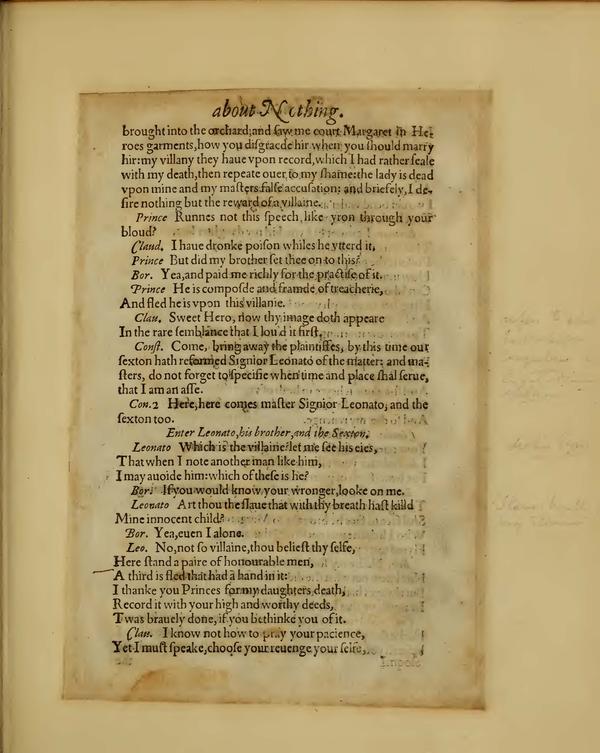 about Nothing.
brought into the orchard, and ſaw me court Margaret in He-
roes garments, how you diſgracde hir when you ſhould marry
hir: my villany they haue vpon record, which I had rather ſeale
with my death, then repeate ouer to my ſhame: the lady is dead
vpon mine and my maſters falſe accuſation: and briefely, I de-
ſire nothing but the reward of a villaine.
Prince Runnes not this ſpeech like yron through your
bloud?
Claud. I haue dronke poiſon whiles he vtterd it.
Prince But did my brother ſet thee on to this?
Bor. Yea, and paid me richly for the practiſe of it.
Prince He is compoſde and framde of treacherie,
And fled he is vpon this villanie.
Clau. Sweet Hero, now thy image doth appeare
In the rare ſemblance that I lou'd it firſt.
Conſt. Come, bring away the plaintiffes, by this time our
ſexton hath reformed Signior Leonato of the matter: and ma-
ſters, do not forget to ſpecifie when time and place ſhal ſerue,
that I am an aſſe.
Con. 2 Here, here comes maſter Signior Leonato, and the
ſexton too.
Enter Leonato, his brother, and the Sexton.
Leonato Which is the villaine? let me ſee his eies,
That when I note another man like him,
I may auoide him: which of theſe is he?
Bor. If you would know your wronger, looke on me.
Leonato Art thou the ſlaue that with thy breath haſt killd
Mine innocent child?
Bor. Yea, euen I alone.
Leo. No, not ſo villaine, thou belieſt thy ſelfe,
Here ſtand a paire of honourable men,
A third is fled that had a hand in it:
I thanke you Princes for my daughters death,
Record it with your high and worthy deeds,
Twas brauely done, if you bethinke you of it.
Clau. I know not how to pray your pacience,
Yet I muſt ſpeake, chooſe your reuenge your ſelfe,